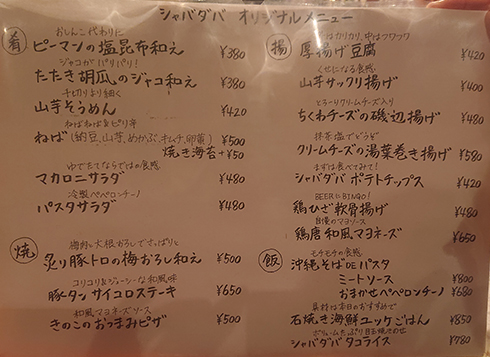 シャバダバ オリジナルメニュー
肴
おしんこ代わりに
ピーマンの塩昆布和え ¥380
ジャコがパリパリ!
たたき胡瓜のジャコ和え ¥380
千切りより細く
山芋そうめん ¥420
ねばねば&ピリ辛
ねば(納豆、山芋、めかぶ、キムチ、卵黄) ¥500
焼き海苔+¥50
ゆでたてならではの食感
マカロニサラダ ¥480
冷製ペペロンチーノ
パスタサラダ ¥480
焼
梅肉と大根おろしでさっぱりと
炙り豚トロの梅おろし和え ¥500
コリコリ&ジューシーな和風味
豚タン サイコロステーキ ¥650
和風マヨネーズソース
きのこのおつまみピザ ¥500
揚
はカリカリ、中はフワフワ
厚揚げ豆腐 ¥420
くせになる食感
山芋サックリ揚げ ¥400
とろーりクリームチーズ入り
ちくわチーズの磯辺揚げ ¥480
抹茶塩でどうぞ
クリームチーズの湯葉巻き揚げ ¥580
まずは食べてみて!
シャバダバ ポテトチップス ¥420
BEERにBINGO!
鶏ひざ軟骨揚げ ¥480
自慢のマヨソース
鶏唐和風マヨネーズ ¥650
飯
モチモチの食感
沖縄そばDEパスタ
ミートソース ¥800
おまかせペペロンチーノ ¥680
具材は本日のおすすめで
石焼き海鮮ユッケごはん ¥850
ボリュームたっぷり
シャバダバ タコライス ¥780